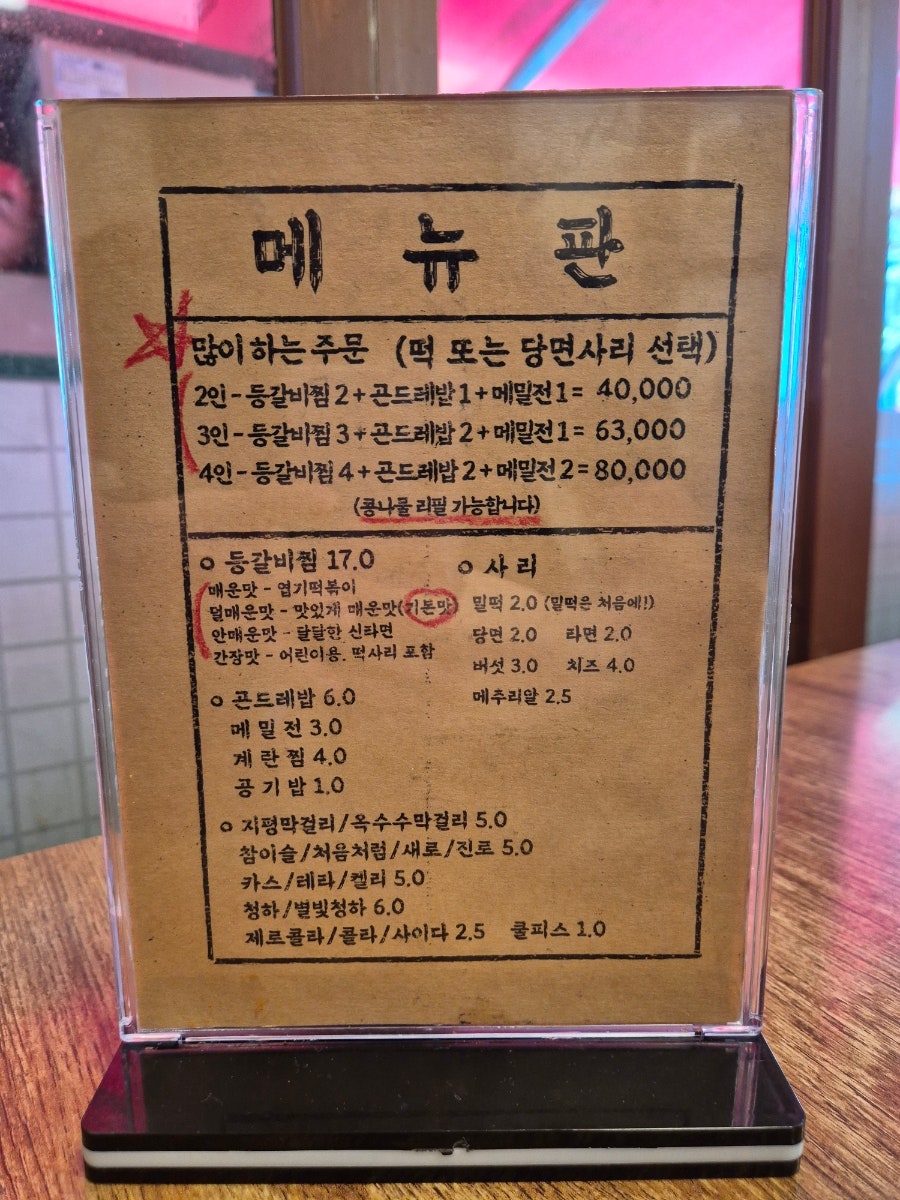 메뉴판
많이 하는 주문 (떡 또는 당면사리 선택)
2인 - 등갈비찜 2 + 곤드레밥 1 + 메밀전 1 = 40,000
3인 - 등갈비찜 3 + 곤드레밥 2 + 메밀전 1 = 63,000
4인 - 등갈비찜 4 + 곤드레밥 2 + 메밀전 2 = 80,000
(콩나물 리필 가능합니다)
○ 등갈비찜 17.0
매운맛 - 엽기떡볶이
덜매운맛 - 맛있게 매운맛(기본맛)
안매운맛 - 달달한 신라면
간장맛 - 어린이용. 떡사리 포함
○ 곤드레밥 6.0
메밀전 3.0
계란찜 4.0
공기밥 1.0
○ 사리
밀떡 2.0 (밀떡은 처음에!)
당면 2.0 라면 2.0
버섯 3.0 치즈 4.0
메추리알 2.5
○ 지평막걸리/옥수수막걸리 5.0
참이슬/처음처럼/새로/진로 5.0
카스/테라/켈리 5.0
청하/별빛청하 6.0
제로콜라/콜라/사이다 2.5 쿨피스 1.0